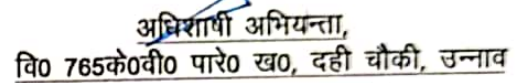 अधिशाषी अभियन्ता,
वि0 765के0वी0 पारे0 ख0, दही चौकी, उन्नाव